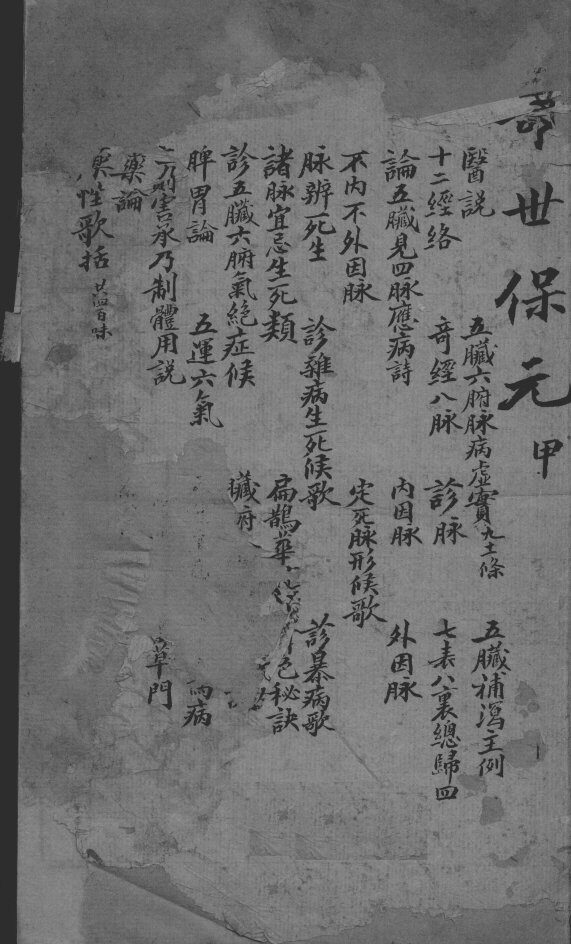 壽世保元 甲
醫説 五臟六腑脉病虚實九士條 五臟補瀉主例
十二經絡 竒經八脉 診脉 七表八裏總歸四
論五臟見四脉應病詩 内因脉 外因脉
不内不外因脉 定死脉形候歌
脉辨死生 診雜病生死候歌 診暴病歌
諸脉宜忌生死類 扁鵲華 色秘訣
診五臟六腑氣絶症候 臟府
脾胃論 五運六氣 病
亢則害承乃制體用説 草門
藥論
藥性歌括 共四百味